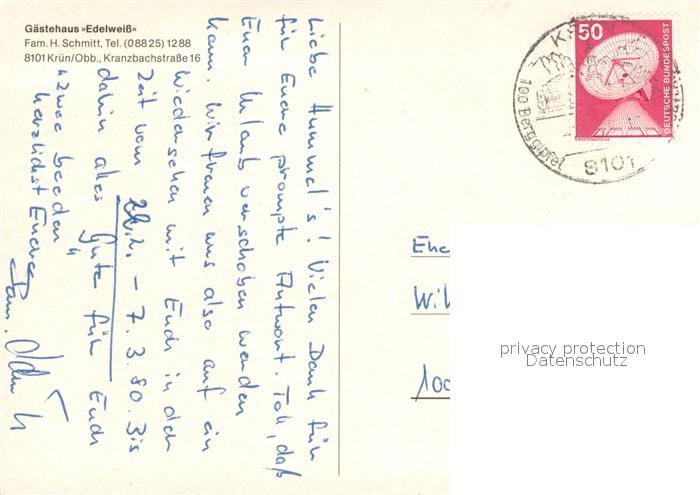 Gästehaus »Edelweiß«
Fam. H. Schmitt, Tel. (08825) 1288
8101 Krün/Obb., Kranzbachstraße 16
Liebe Hummel's! Vielen Dank für
für Euere prompte Antwort. Toll, daß
Euer Urlaub verschoben werden
kann. Wir freuen uns also auf ein
Wiedersehen mit Euch in der
Zeit vom 28.2. - 7.3.80. Bis
dahin alles Gute für Euch
"zwee beeden"
herzlichst Euere
Fam. Schmitt
50
DEUTSCHE BUNDESPOST
100 Berggipfel
8101
Wil
100
privacy protection
Datenschutz